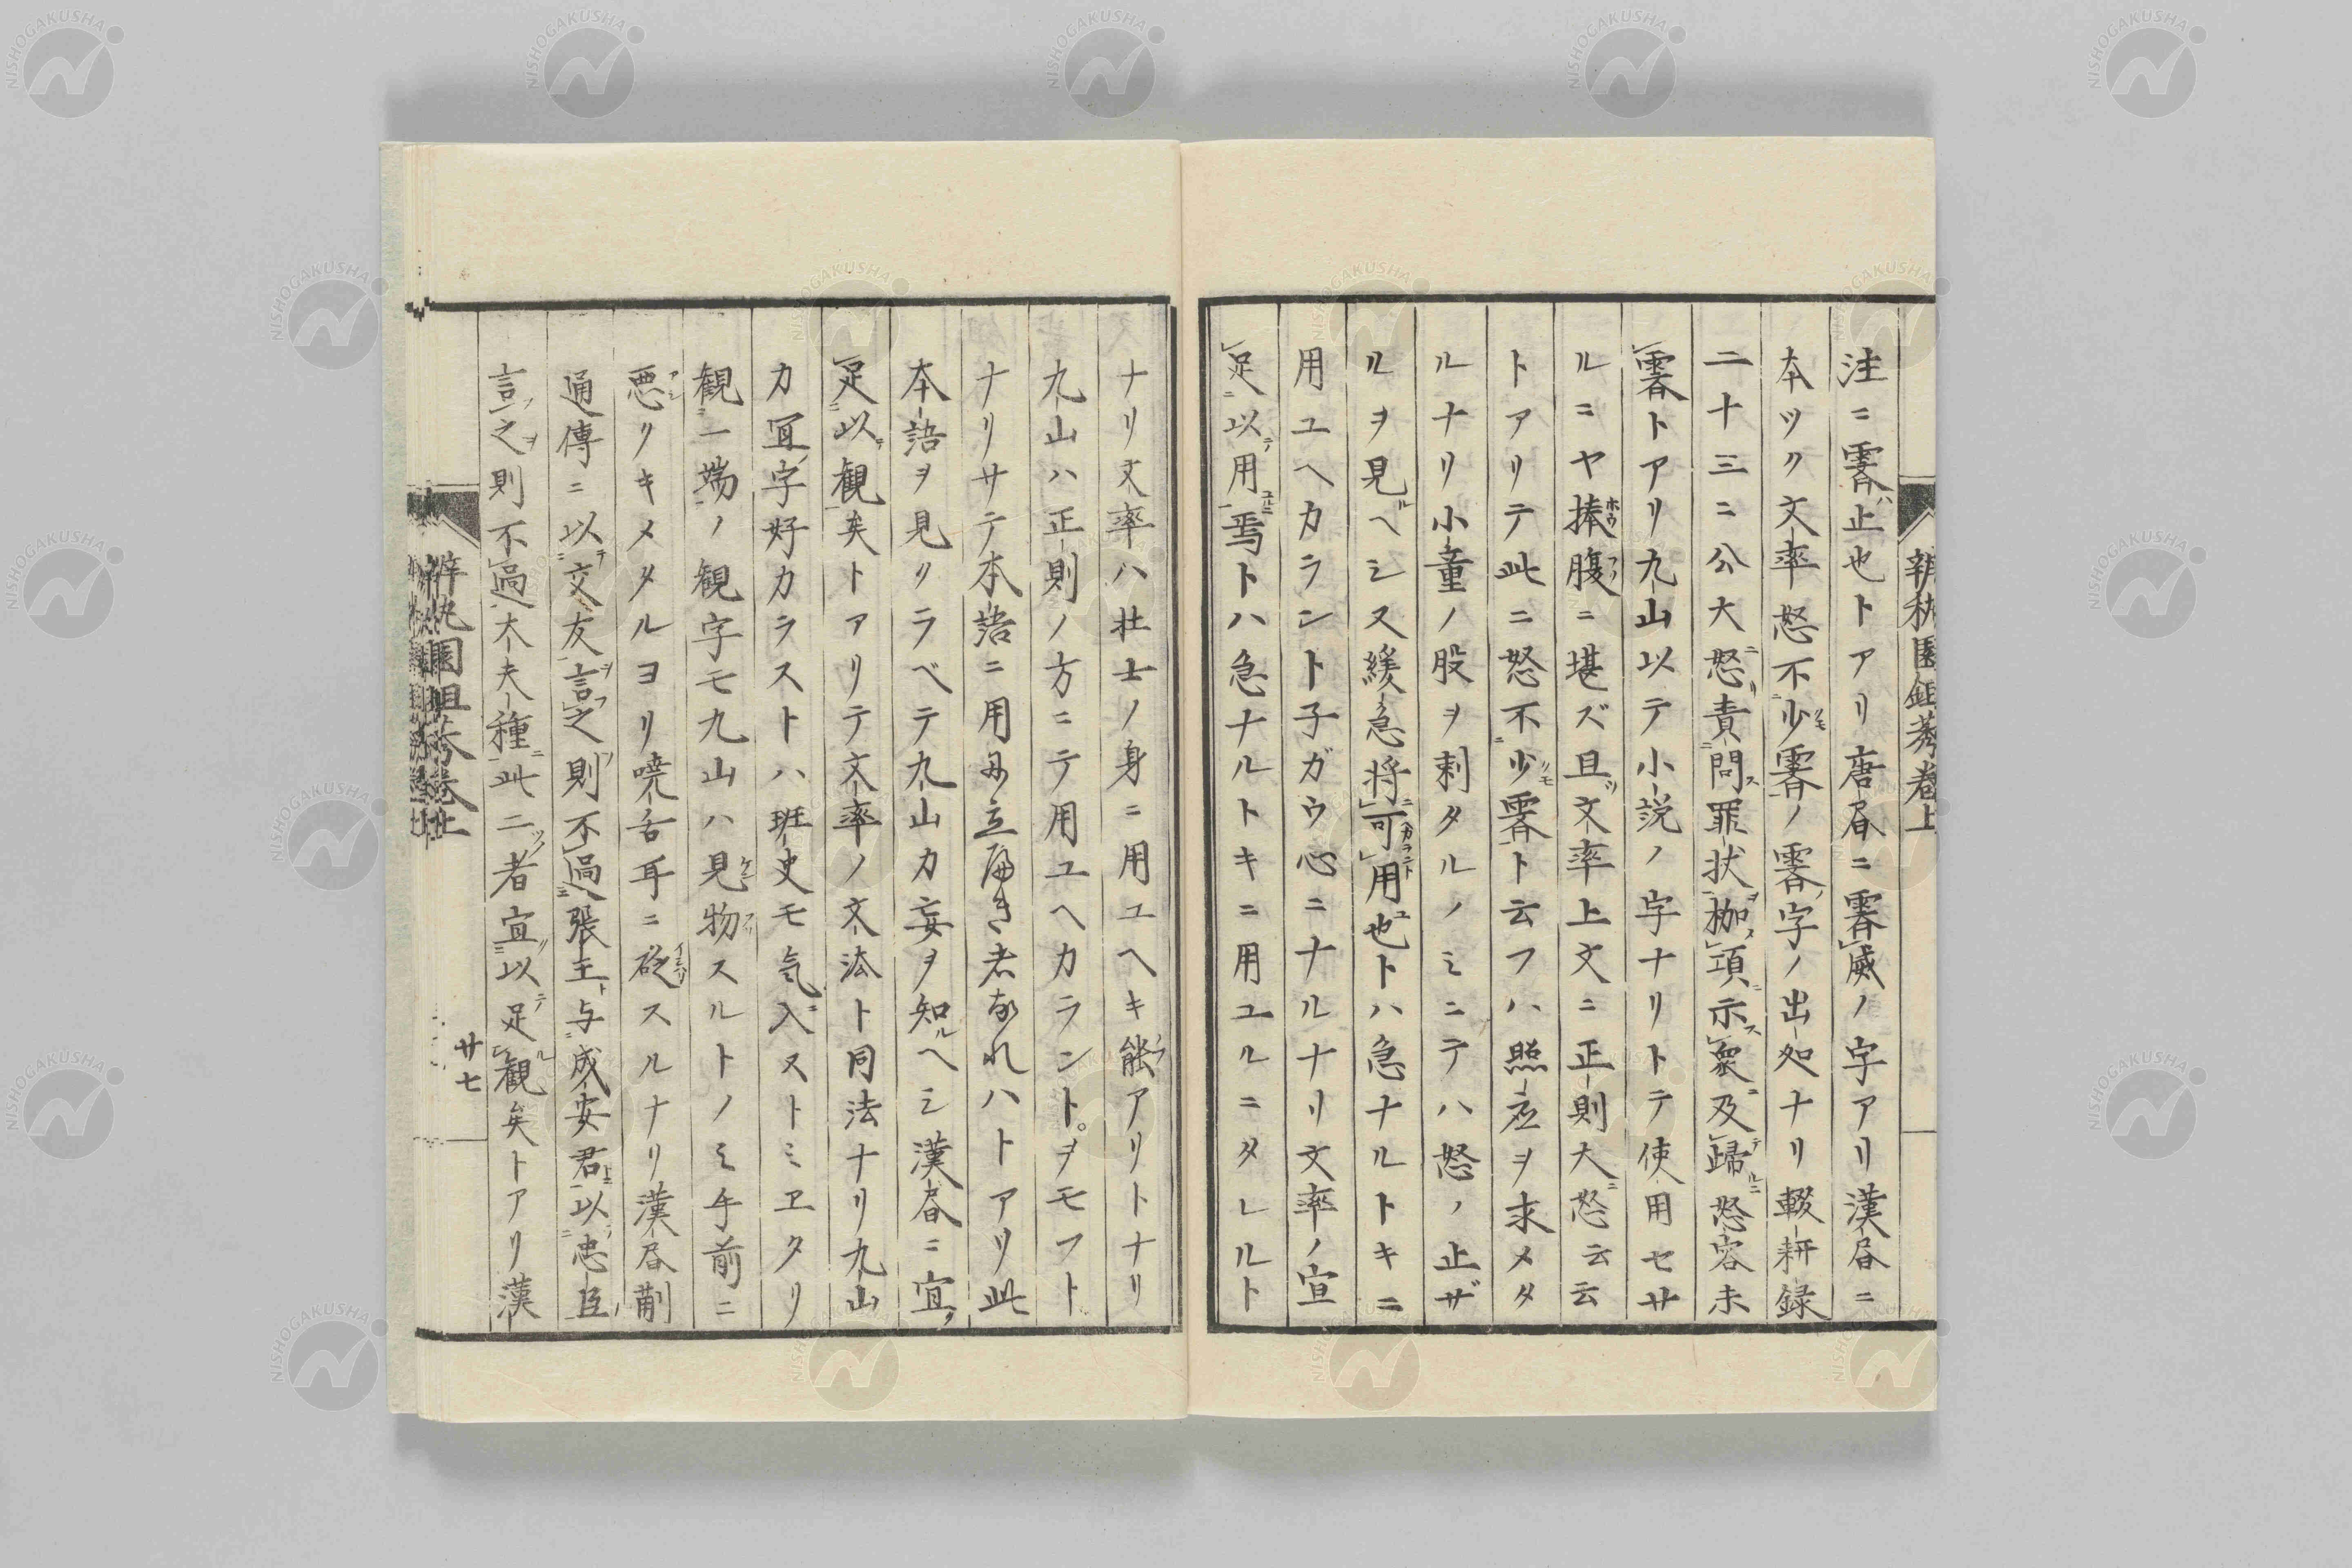 辨秇園鉏莠巻上
注ニ霽ハ止也トアリ唐書ニ霽威ノ字アリ漢書ニ
本ツク文率怒不少霽ノ霽字ノ出処ナリ輟耕録
二十三ニ公大怒責問罪状枷項示衆及歸怒容未
霽トアリ九山以テ小説ノ字ナリトテ使用セサ
ルニヤ捧腹ニ堪ズ且文率上文ニ正則大怒云云
トアリテ此ニ怒不少霽ト云フハ照応ヲ求メタ
ルナリ小童ノ股ヲ刺タルノミニテハ怒ノ止ザ
ルヲ見ルベシ又緩急将可用也トハ急ナルトキニ
用ユヘカラント子ガウ心ニナルナリ文率ノ宣
足以用焉トハ急ナルトキニ用ユルニタレルト
ナリ文率ハ壮士ノ身ニ用ユヘキ能アリトナリ
九山ハ正則ノ方ニテ用ユヘカラントヲモフト
ナリサテ本語ニ用に立へき者なれハトアリ此
本語ヲ見クラベテ九山カ妄ヲ知ルヘシ漢書ニ宜
足以観矣トアリテ文率ノ文法ト同法ナリ九山
カ宜字好カラストハ班史モ気ニ入ヌトミエタリ
観一端ノ観字モ九山ハ見物スルトノミ手前ニ
悪クキメタルヨリ嘵舌耳ニ砭スルナリ漢書蒯
通傳ニ以交友言之則不過張王与成安君以忠臣
言之則不過大夫種此二者宜以足観矣トアリ漢
辨秇園鉏莠巻上
廿七
NISHOGAKUSHA